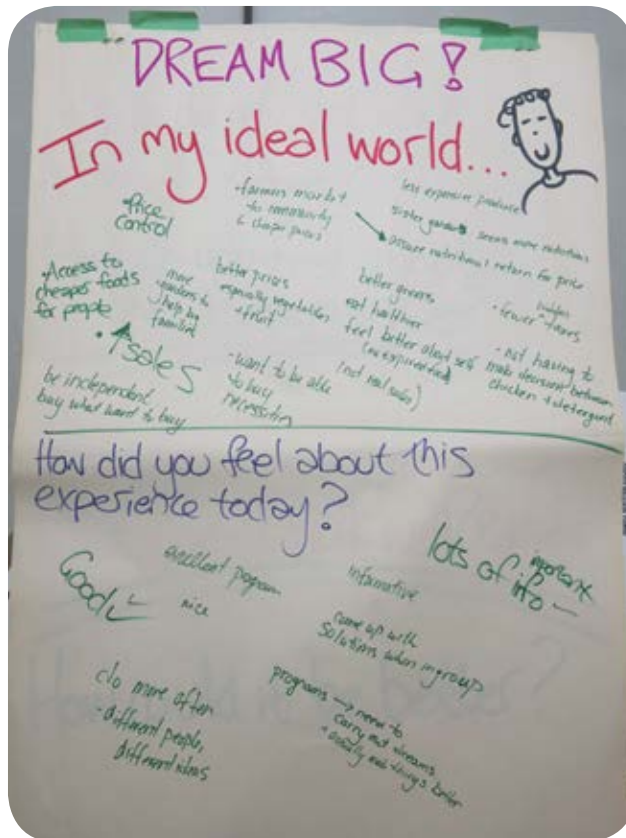 DREAM BIG!
In my ideal world...
• Price
control
• farmers market
to community
& cheaper prices
less expensive produce
sister
seems more nutritious
assure nutritional return for price
• Access to
cheaper foods
for people
more
gardens to
help big
families
better prices
especially vegetables
+ fruit
better greens
eat healthier
feel better about self
(not real sales)
hidden
• fewer taxes
• ↑ sales
be independent
buy what want to buy
• want to be able
to buy
necessities
• not having to
make decisions between
chicken + detergent
How did you feel about this
experience today?
Good
excellent program
nice
informative
lots of important
info
come up with
solutions when in group
do more often
- different people,
different ideas
programs → need to
carry out dreams
+ actually make things better